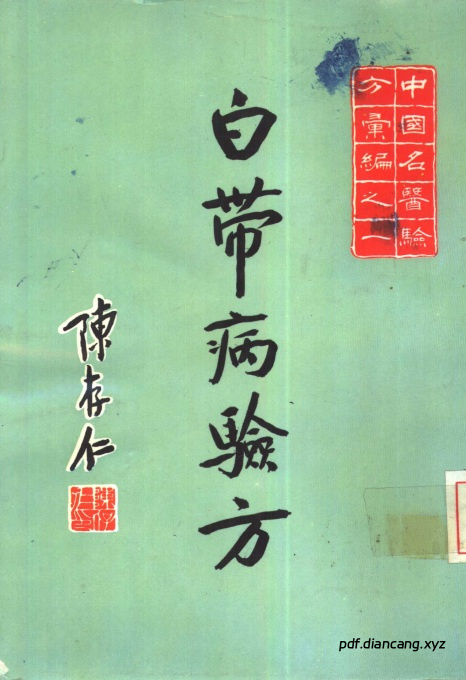 中國名醫驗
方彙編之一
白帶病驗方
陳存仁
pdf.diancang.xyz